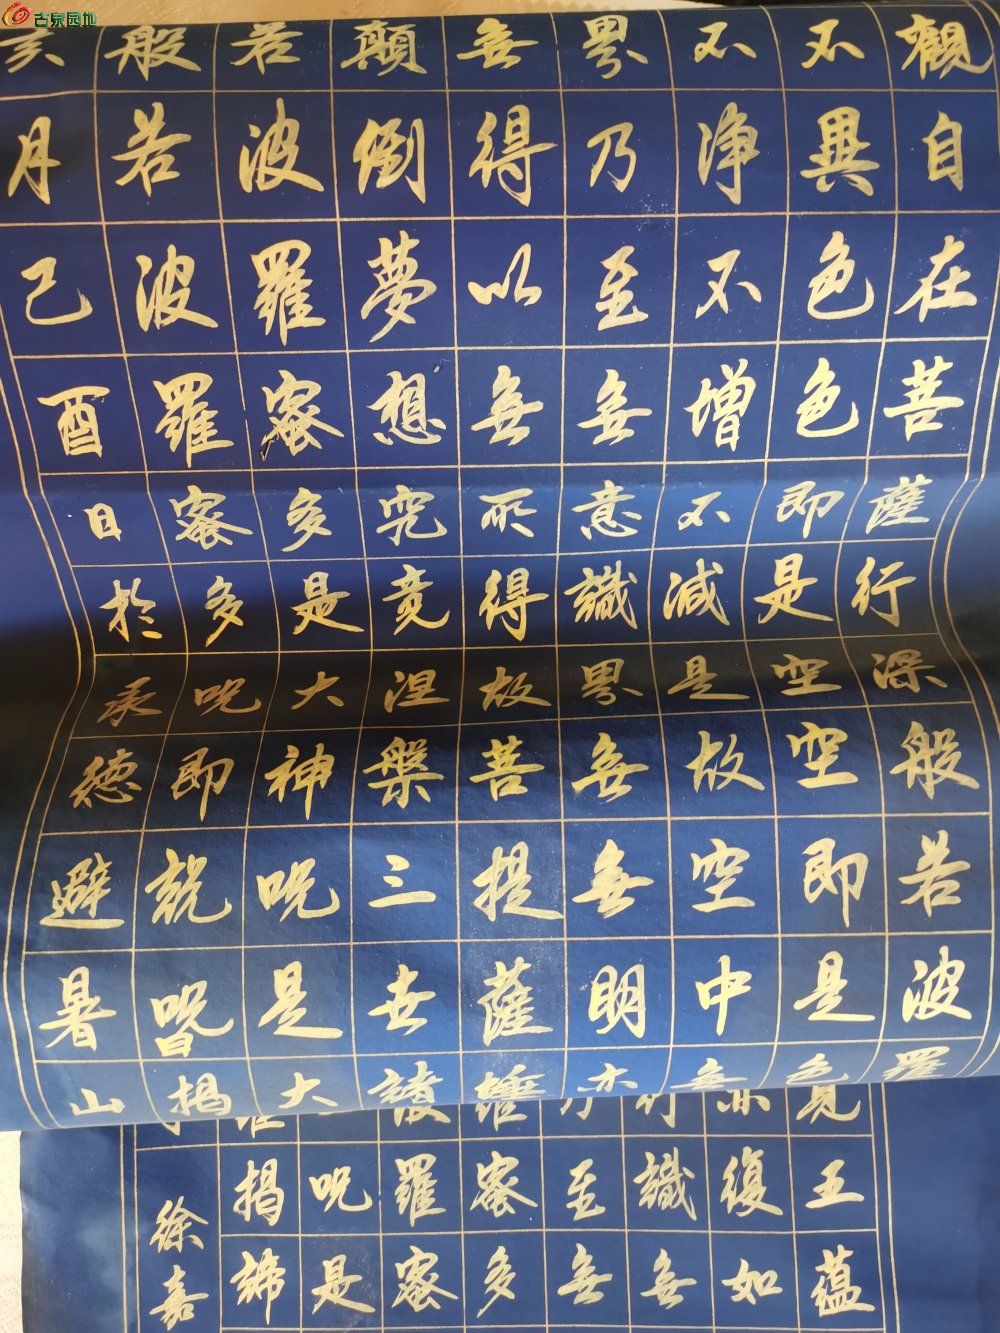 古泉园地
觀自在菩薩行深般若波羅
不異色色即是空空即是色
不淨不增不減是故空中無
界乃至無意識界無無明亦
無得以無所得故菩提薩埵
顛倒夢想究竟涅槃三世諸
若波羅蜜多是大神咒是大
般若波羅蜜多咒即說咒曰揭
亥月己酉日於承德避暑山
見五蘊
亦復如
行識無
乃至無
蜜多
羅蜜
咒是
揭諦
徐嘉